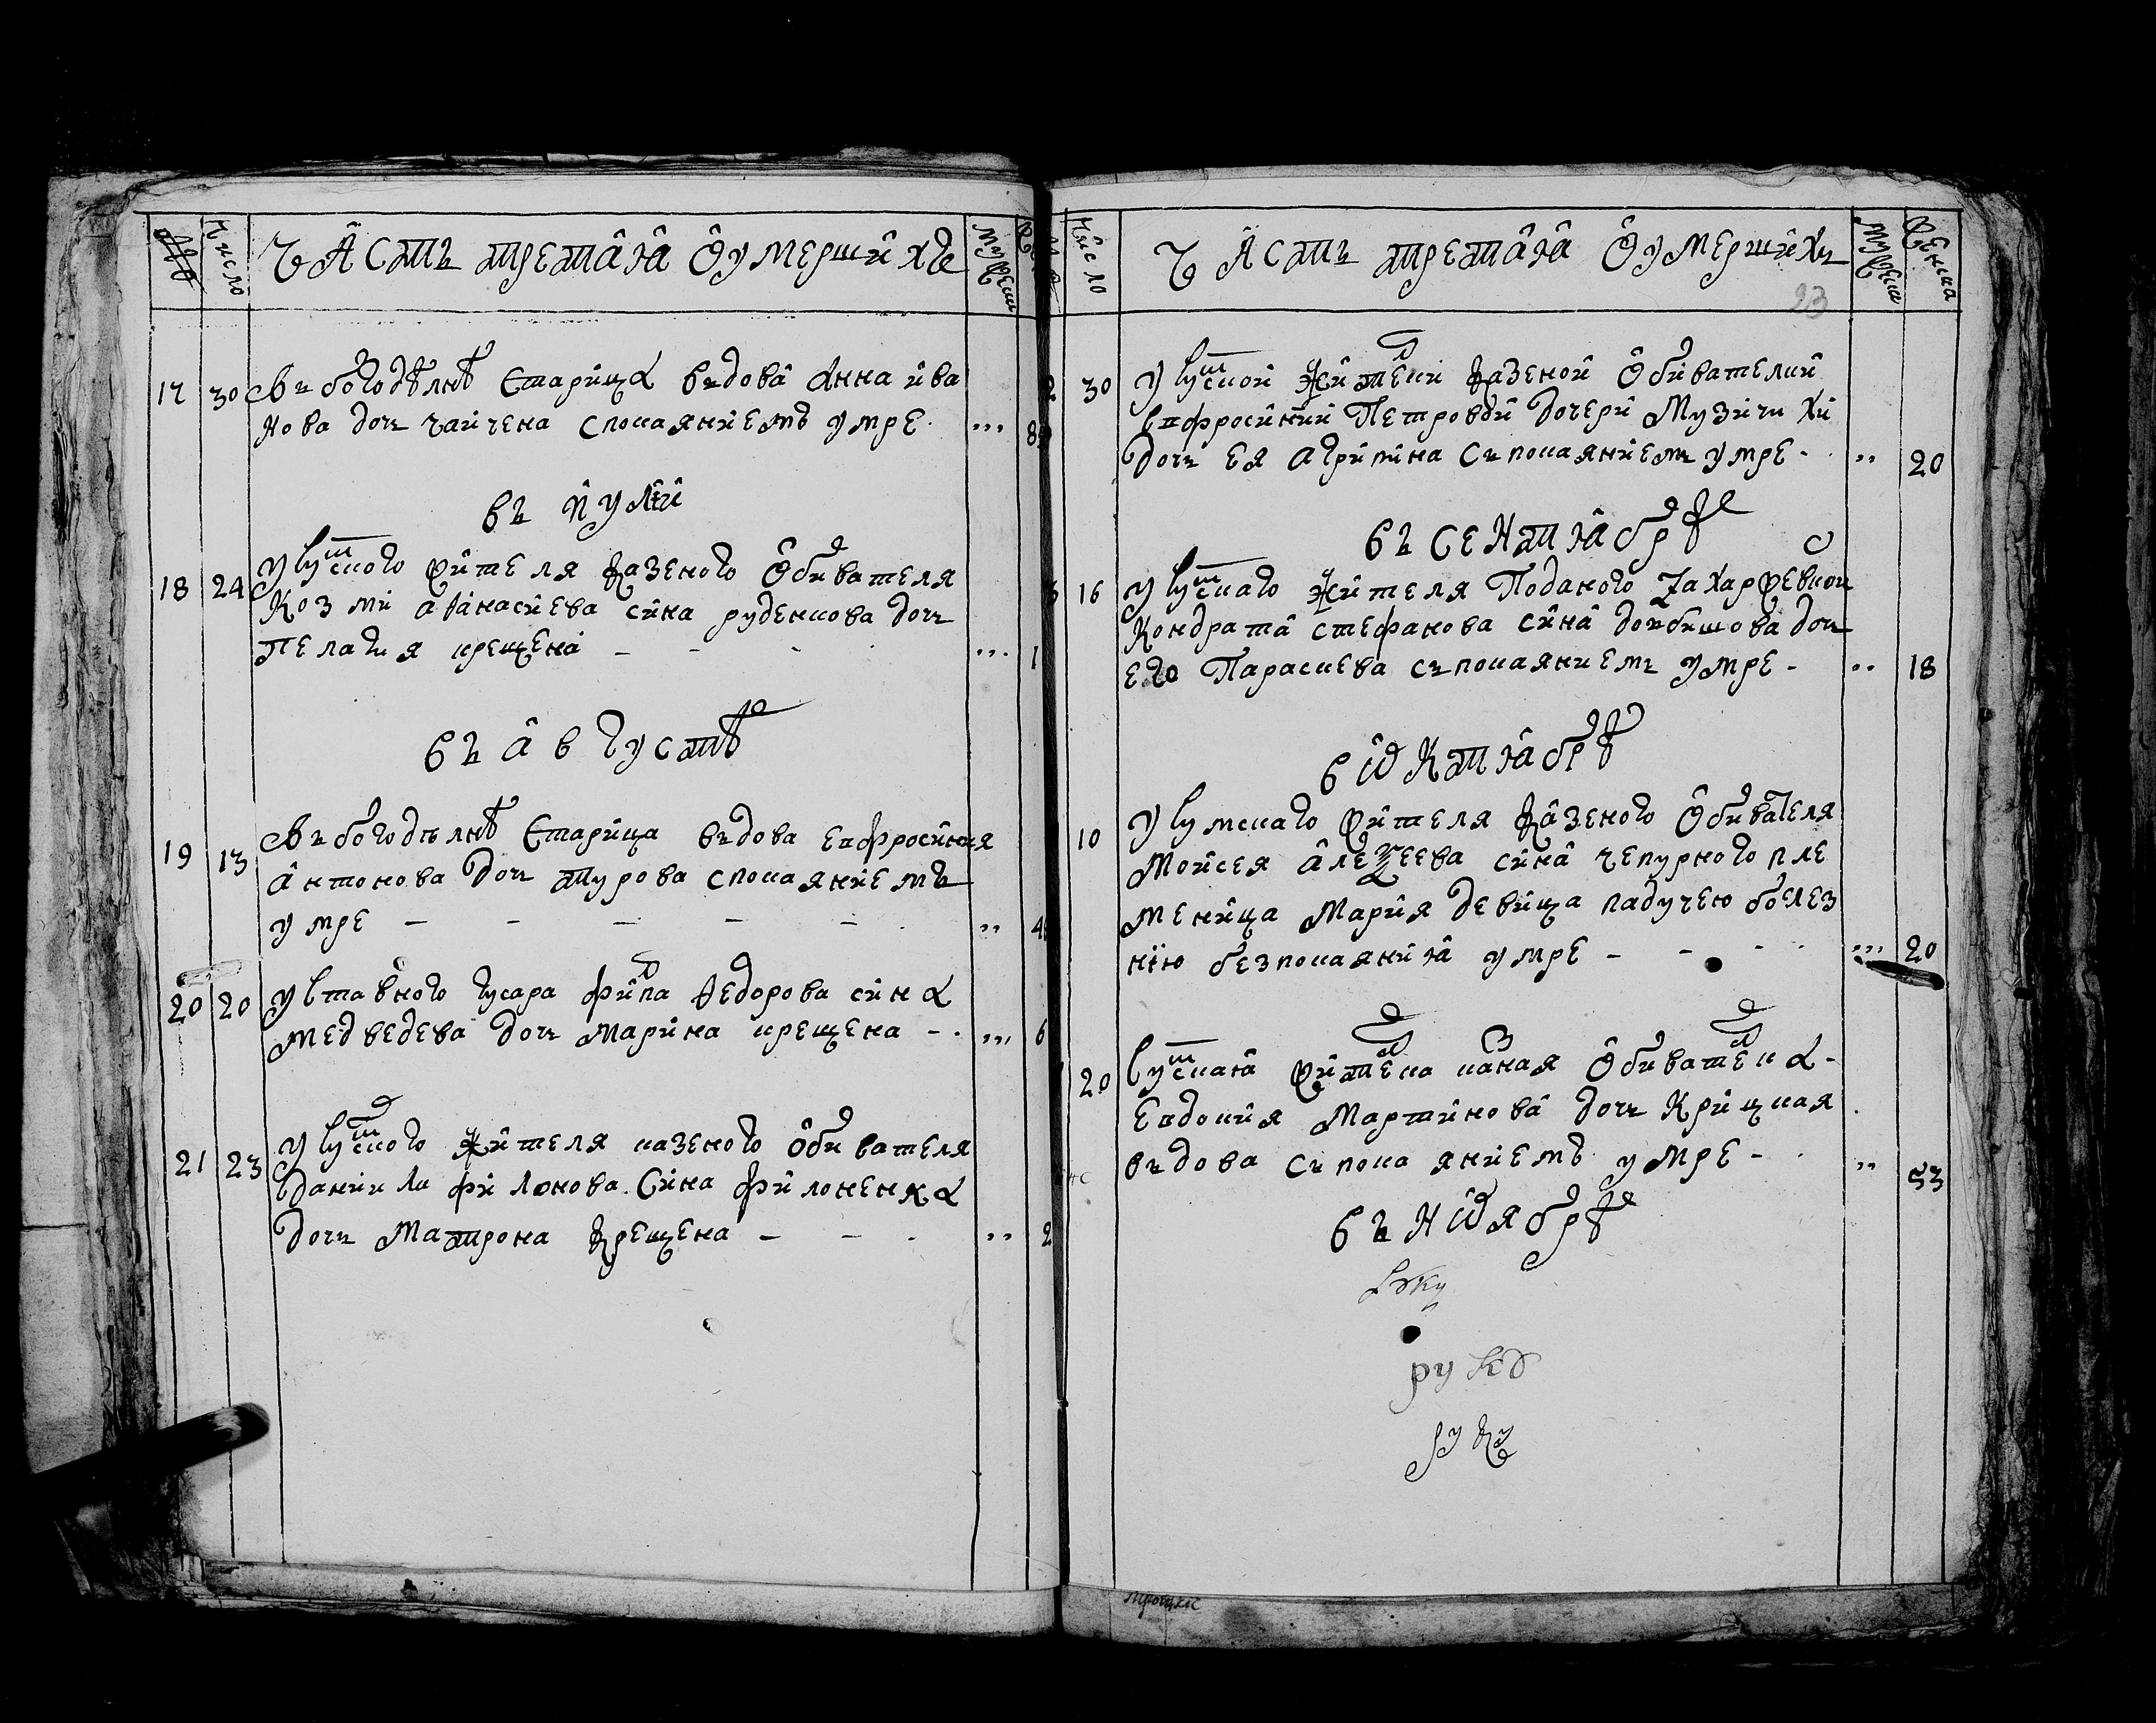 Число
Часть третая о умершихъ
Мужеска
17 30 Въ богоделнѣ Старица вьдова Анна ива
нова дочь чайчена с покаяниемъ умре ...
въ иулии
18 24 У Сумского жителя казеного обивателя
Козми афанасиева сина руденкова дочь
Пелагия крещена - - - ...
въ августѣ
19 13 Въ богоделнѣ Старица вьдова евфросиния
антонова дочь турова с покаяниемъ
умре - - - - - ..
20 20 У ставного гусара филипа федорова сина
медведева дочь Марина крещена - ...
21 23 У Сумского жителя казеного обивателя
Даниила филонова сина филоненка
дочь Матрона крещена - - - ..
Число
Часть третая о умершихъ
Мужеска
Женска
23
30 У Сумской жителки казеной обивателки
Евфросинии Петровой дочери Музичихи
дочь ея агрипина съ покаяниемъ умре - .. 20
въ сентябрѣ
16 У Сумскаго жителя Поданого Захаржевской
Кондрата стефанова сина довбишова дочь
его Параскева съ покаяниемъ умре - .. 18
в октябрѣ
10 У Сумскаго жителя казеного обивателя
Моисея алеѯеева сина чепурного пле
меница Мария девица падучею болез
нїю без покаяния умре - - ... 20
20 Сумская жителка казная обивателка -
Евдокия Мартинова дочь Крицкая
вьдова съ покаяниемъ умре - .. 53
въ ноябрѣ
руку